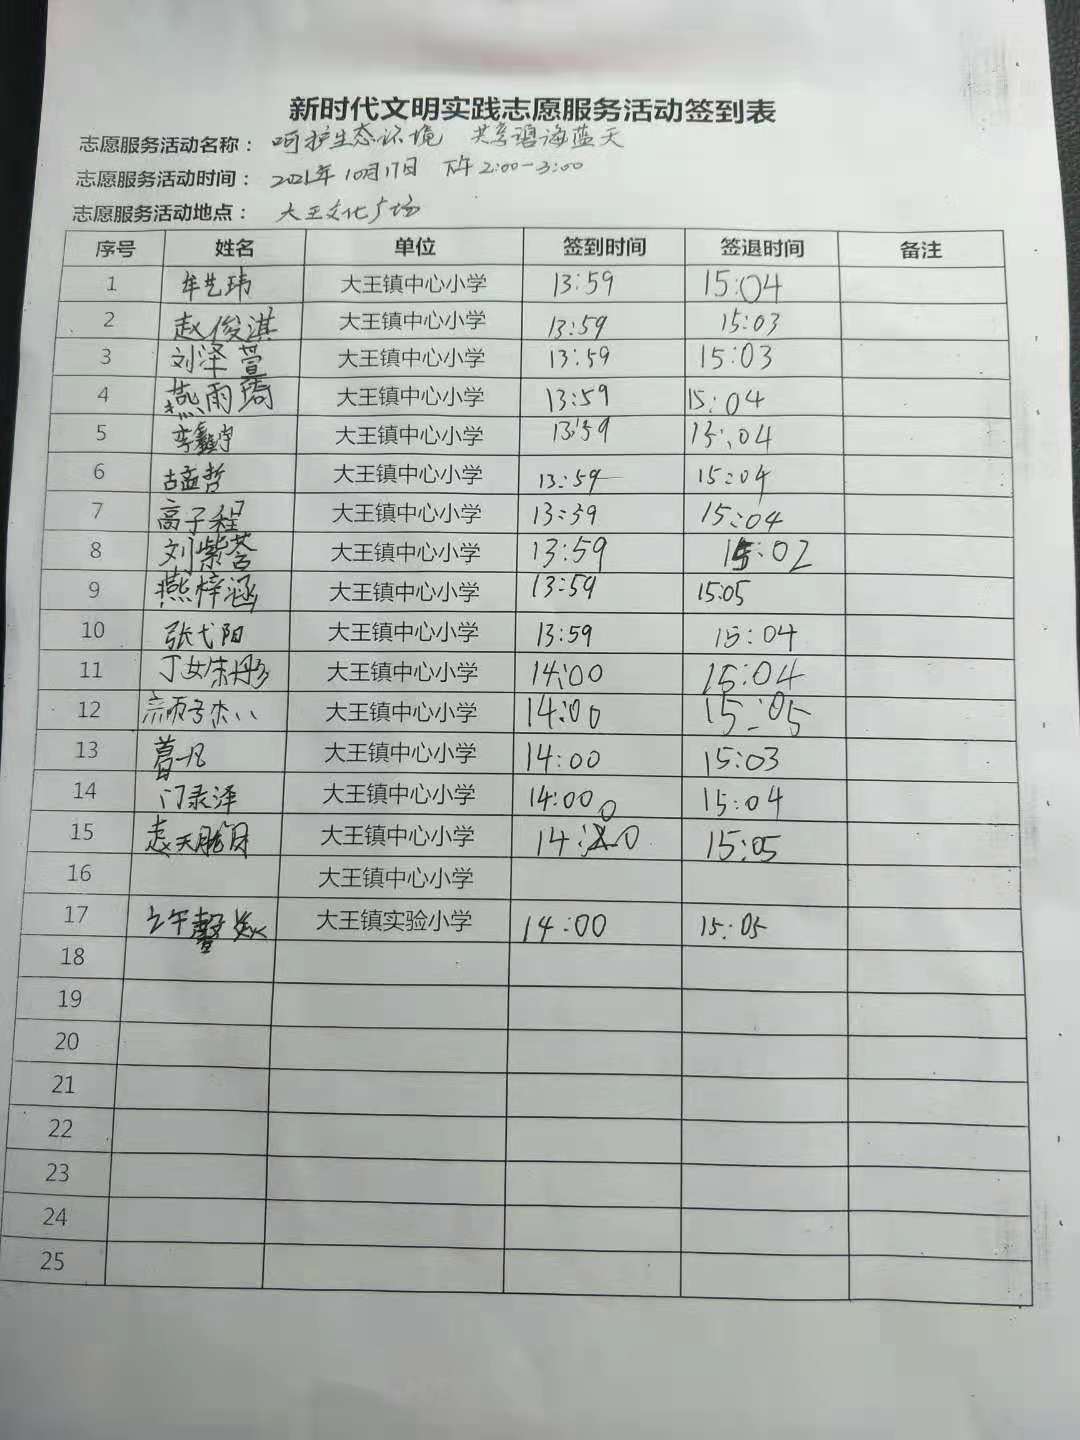 新时代文明实践志愿服务活动签到表
志愿服务活动名称： 呵护生态环境 共享碧海蓝天
志愿服务活动时间： 2021年10月17日 下午2:00-3:00
志愿服务活动地点： 大王文化广场
序号 姓名 单位 签到时间 签退时间 备注
1 牟艺玮 大王镇中心小学 13:59 15:04
2 赵俊淇 大王镇中心小学 13:59 15:03
3 刘泽萱 大王镇中心小学 13:59 15:03
4 燕雨琦 大王镇中心小学 13:59 15:04
5 大王镇中心小学 13:59 15:04
6 古孟哲 大王镇中心小学 13:59 15:04
7 高子程 大王镇中心小学 13:59 15:04
8 刘紫荅 大王镇中心小学 13:59 15:02
9 燕梓涵 大王镇中心小学 13:59 15:05
10 张弋阳 大王镇中心小学 13:59 15:04
11 大王镇中心小学 14:00 15:04
12 大王镇中心小学 14:00 15:05
13 大王镇中心小学 14:00 15:03
14 大王镇中心小学 14:00 15:04
15 大王镇中心小学 15:05
16 大王镇中心小学
17 大王镇实验小学 14:00 15:05
18
19
20
21
22
23
24
25